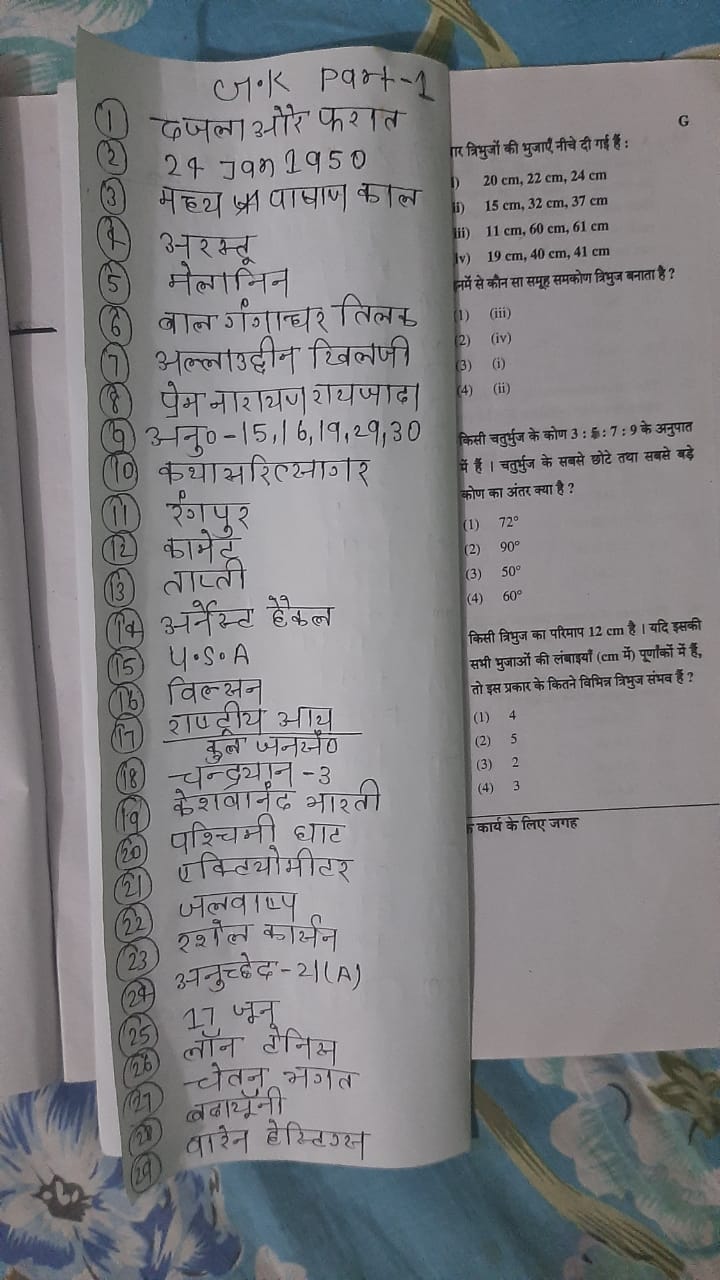 G.K Part-1
① दजला और फरात
② 24 Jan 1950
③ मध्य पाषाण काल
④ अरस्तू
⑤ मेलानिन
⑥ बाल गंगाधर तिलक
⑦ अल्लाउद्दीन खिलजी
⑧ प्रेम नारायण रायजादा
⑨ अनु० - 15,16,19,29,30
⑩ कथासरित्सागर
⑪ रंगपुर
⑫ कामेट
⑬ ताप्ती
⑭ अर्नेस्ट हैकल
⑮ U.S.A
⑯ विल्सन
⑰ राष्ट्रीय आय
कुल जनसं०
⑱ चन्द्रयान -3
⑲ केशवानंद भारती
⑳ पश्चिमी घाट
㉑ एक्टियोमीटर
㉒ जलवाष्प
㉓ रशेल कार्सन
㉔ अनुच्छेद - 21(A)
㉕ 17 जून
㉖ लॉन टेनिस
㉗ चेतन भगत
㉘ बदायूँनी
㉙ वारेन हेस्टिंग्स
G
त्रिभुजों की भुजाएँ नीचे दी गई हैं :
20 cm, 22 cm, 24 cm
15 cm, 32 cm, 37 cm
11 cm, 60 cm, 61 cm
19 cm, 40 cm, 41 cm
में से कौन सा समूह समकोण त्रिभुज बनाता है ?
(1) (iii)
(2) (iv)
(3) (i)
(4) (ii)
किसी चतुर्भुज के कोण 3 : 5 : 7 : 9 के अनुपात
में हैं । चतुर्भुज के सबसे छोटे तथा सबसे बड़े
कोण का अंतर क्या है ?
(1) 72°
(2) 90°
(3) 50°
(4) 60°
किसी त्रिभुज का परिमाप 12 cm है । यदि इसकी
सभी भुजाओं की लंबाइयाँ (cm में) पूर्णांकों में हैं,
तो इस प्रकार के कितने विभिन्न त्रिभुज संभव हैं ?
(1) 4
(2) 5
(3) 2
(4) 3
कार्य के लिए जगह